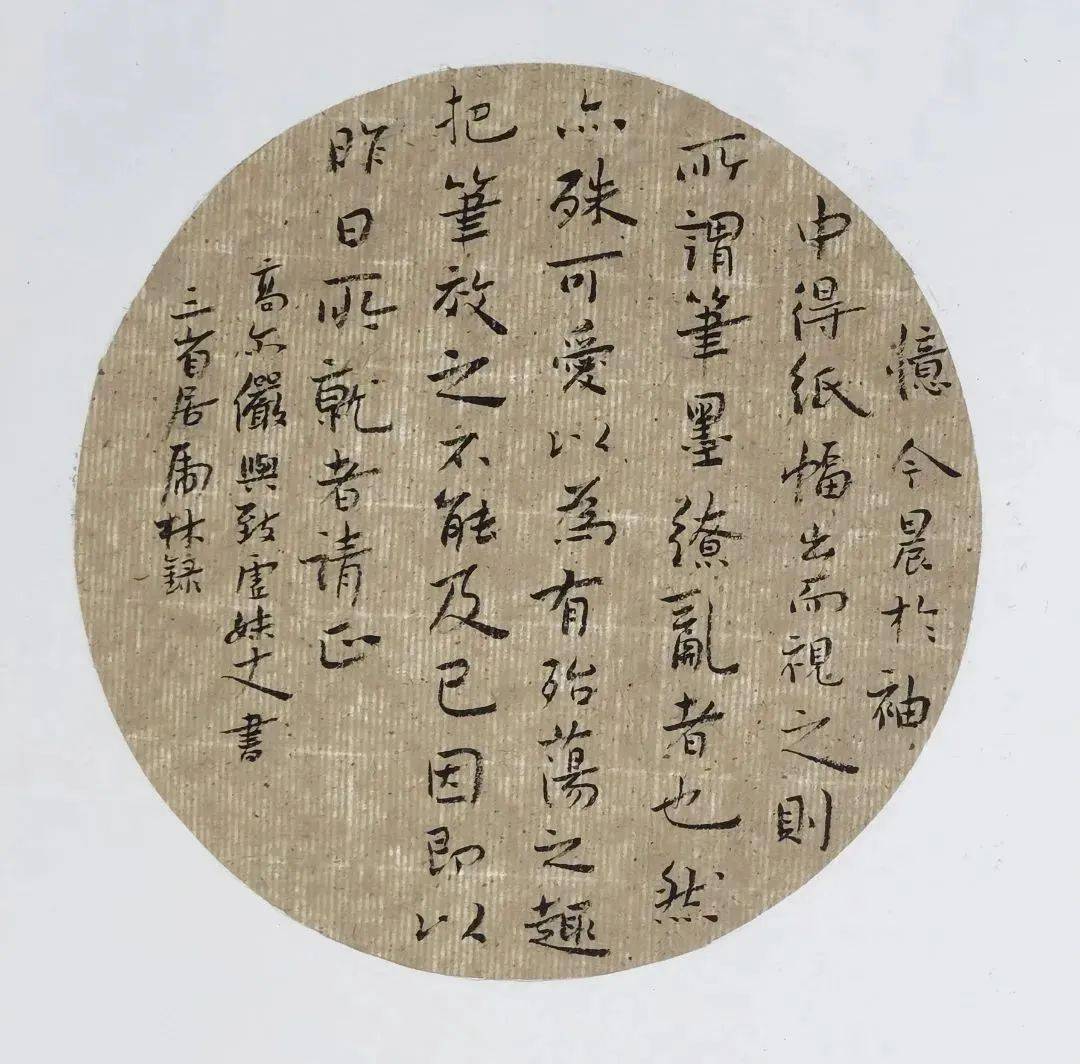 憶今晨於袖
中得紙幅出而視之則
所謂筆墨繚亂者也然
亦殊可愛以為有殆蕩之趣
把筆效之不能及已因即以
昨日所就者請正
高爾儼與致虛妹丈書
三省居 林錄